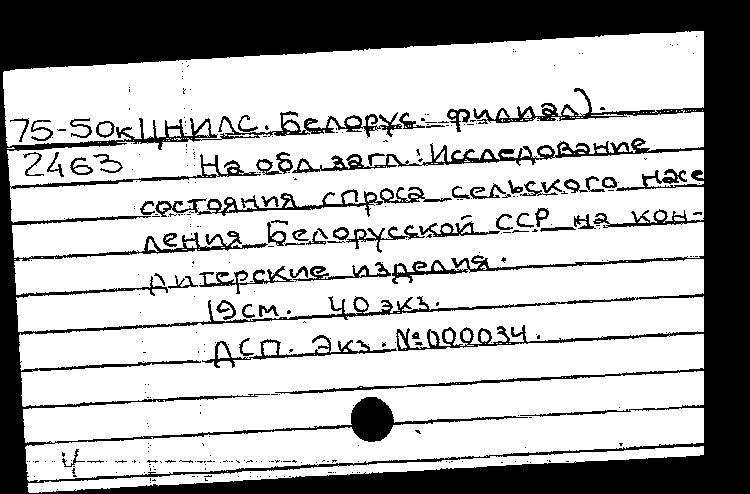 75-50к ЦНИЛС. Белорус. филиал).
2463 На обл. загл.: Исследование
состояния спроса сельского насе
ления Белорусской ССР на кон-
дитерские изделия.
19см. 40 экз.
ДСП. Экз. №000034.
4